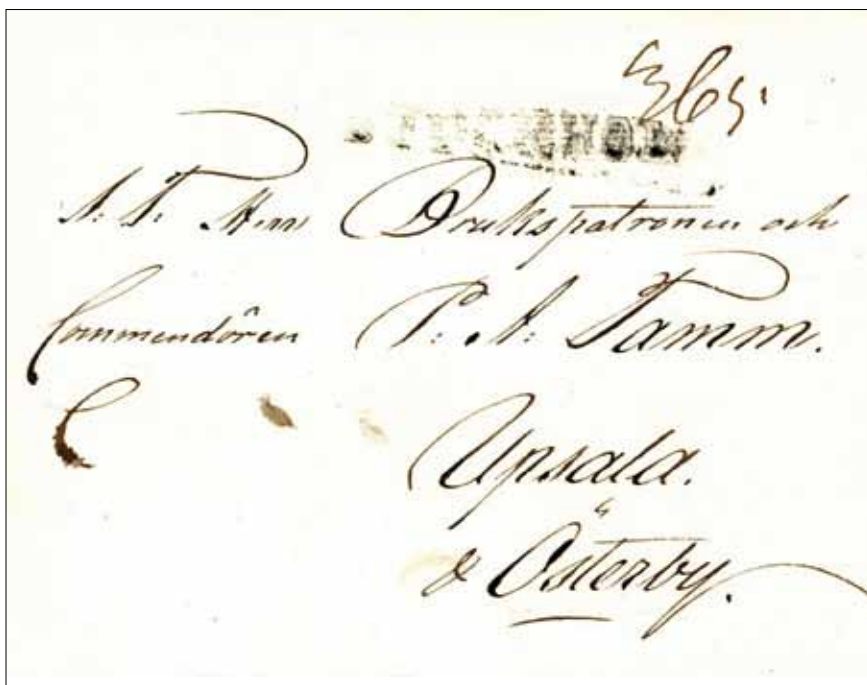 365.
S: T: Herr Brukspatronen och
Commendören P: A: Tamm.
Upsala.
& Österby.